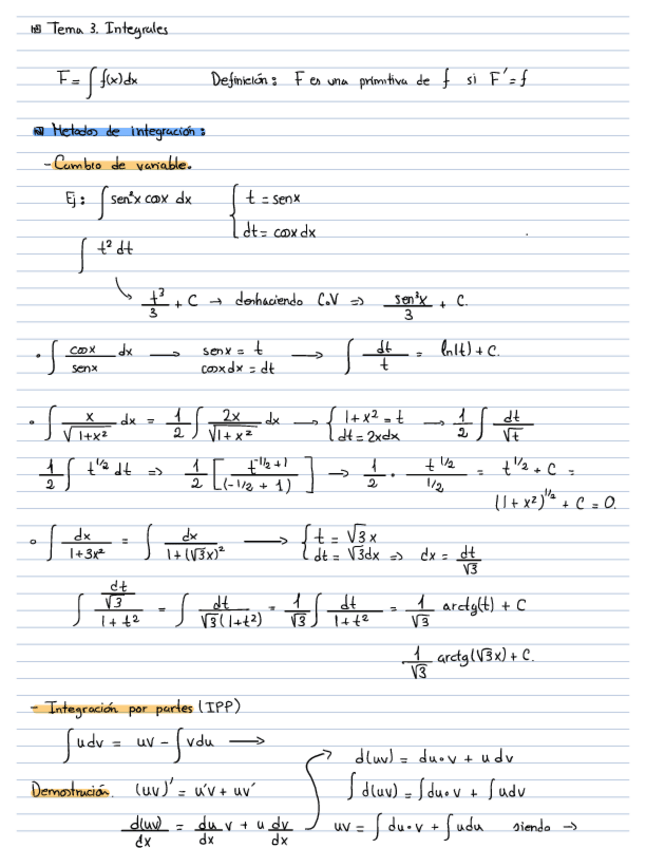 Tema 3. Integrales
F = ∫ f(x) dx Definición: F es una primitiva de f si F' = f
Metodos de integración:
- Cambio de variable.
Ej: ∫ sen²x cosx dx { t = senx
dt = cosx dx
∫ t² dt
t³/3 + C → deshaciendo C.V ⇒ sen³x/3 + C.
• ∫ cosx/senx dx → senx = t → ∫ dt/t = ln(t) + C.
cosxdx = dt
• ∫ x/√(1+x²) dx = 1/2 ∫ 2x/√(1+x²) dx → { 1+x² = t → 1/2 ∫ dt/√t
dt = 2xdx
1/2 ∫ t^(1/2) dt ⇒ 1/2 [ t^(-1/2+1) / (-1/2 + 1) ] → 1/2 · t^(1/2) / 1/2 = t^(1/2) + C =
(1 + x²)^(1/2) + C = 0.
• ∫ dx/(1+3x²) = ∫ dx/(1+(√3x)²) → { t = √3 x
dt = √3dx ⇒ dx = dt/√3
∫ (dt/√3)/(1+t²) = ∫ dt/(√3(1+t²)) = 1/√3 ∫ dt/(1+t²) = 1/√3 arctg(t) + C
1/√3 arctg(√3x) + C.
- Integración por partes (IPP)
∫ u dv = uv - ∫ v du →
Demostrución. (uv)' = u'v + uv'
d(uv)/dx = du/dx v + u dv/dx
d(uv) = du·v + u dv
∫ d(uv) = ∫ du·v + ∫ udv
uv = ∫ du·v + ∫ udu siendo →